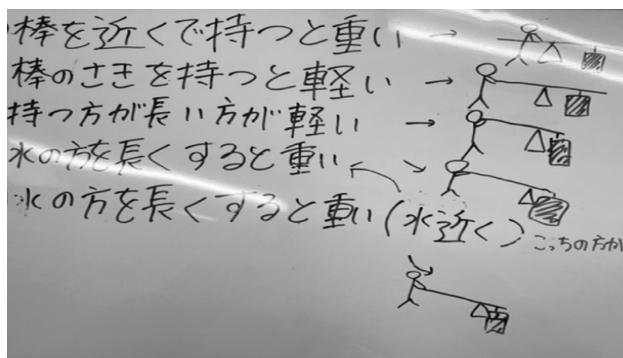 棒を近くで持つと重い →
棒のさきを持つと軽い →
持つ方が長い方が軽い →
水の方を長くすると重い
水の方を長くすると重い(水近く)
こっちの方が